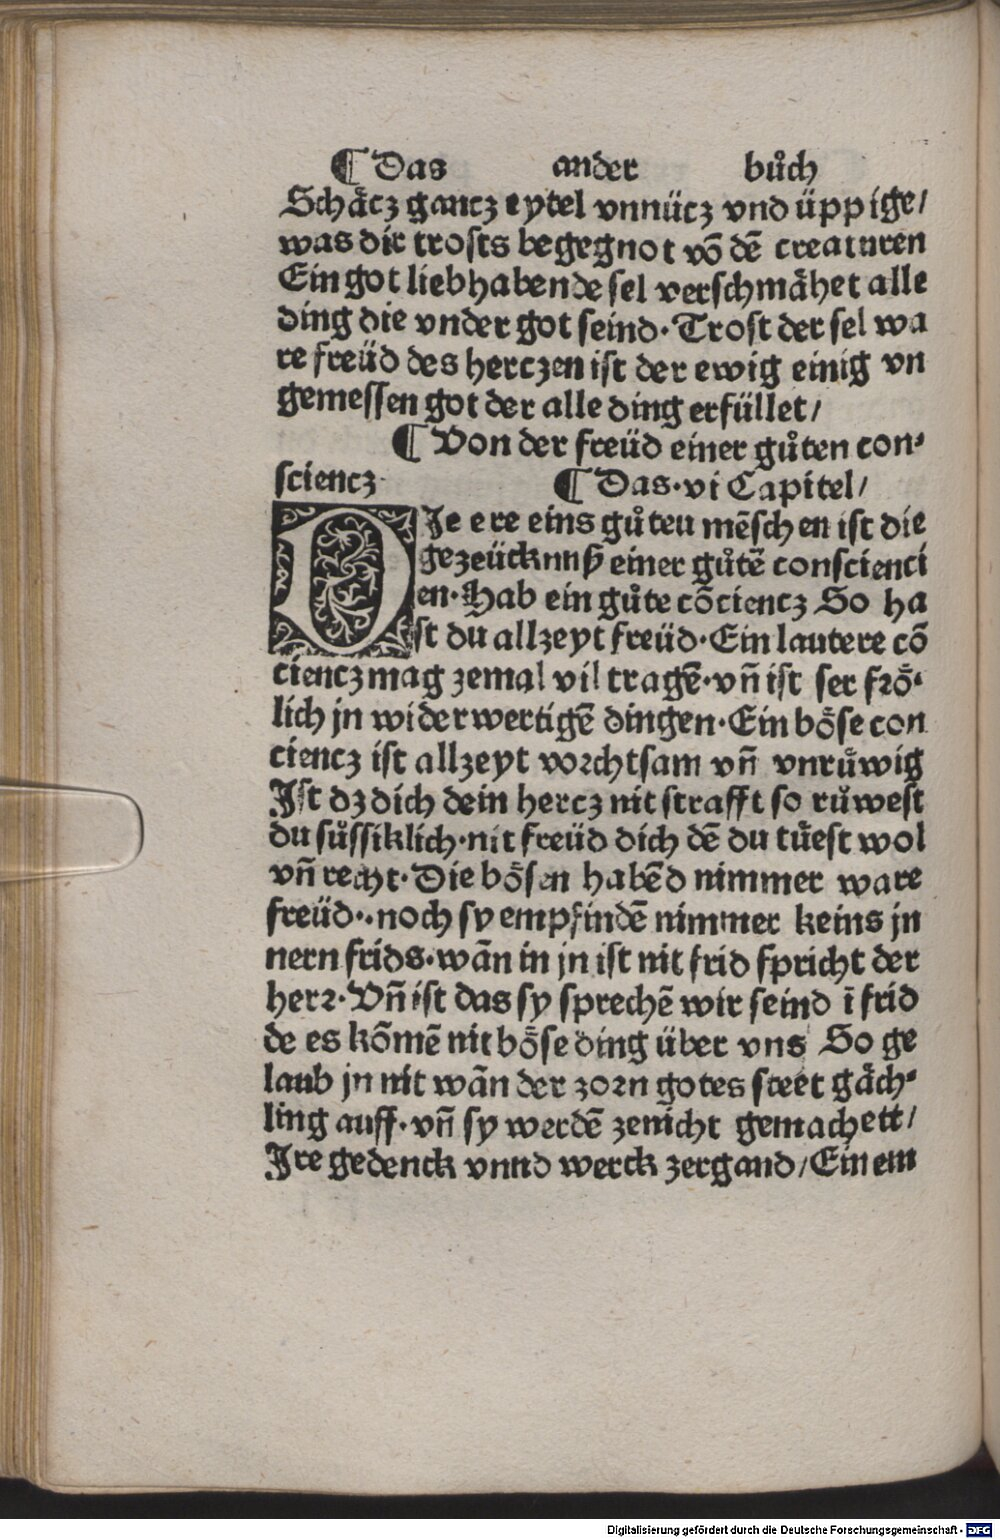 ¶ Das ander bůch
Schåcz gancz eytel vnnücz vnd üppige/
was dir trosts begegnot võ dẽ creaturen
Ein got liebhabende sel verschmåhet alle
ding die vnder got seind· Trost der sel wa
re freüd des herczen ist der ewig einig vn
gemessen got der alle ding erfüllet/
¶ Von der freüd einer gůten con⸗
sciencz ¶ Das·vi Capitel/
DJe ere eins gůten mẽschen ist die
gezeücknuß einer gůtẽ conscienci
en· Hab ein gůte cõciencz So ha
st du allzeyt freüd· Ein lautere cõ
ciencz mag zemal vil tragẽ· vñ ist ser frȯ⸗
lich jn widerwertigẽ dingen· Ein bȯse con
ciencz ist allzeyt vorchtsam vñ vnrůwig
Jst dz dich dein hercz nit strafft so růwest
du sůssiklich· nit freüd dich dẽ du tůest wol
vñ recht· Die bȯsen habẽd nimmer ware
freüd·· noch sy empfindẽ nimmer keins jn
nern frids· wãn in jn ist nit frid spricht der
herr· Vñ ist das sy sprechẽ wir seind ĩ frid
de es kõmẽ nit bȯse ding über vns So ge
laub jn nit wãn der zorn gotes steet gåch⸗
ling auff· vñ sy werdẽ zenicht gemachett/
Jre gedenck vnnd werck zergand/ Einem
Digitalisierung gefördert durch die Deutsche Forschungsgemeinschaft - DFG